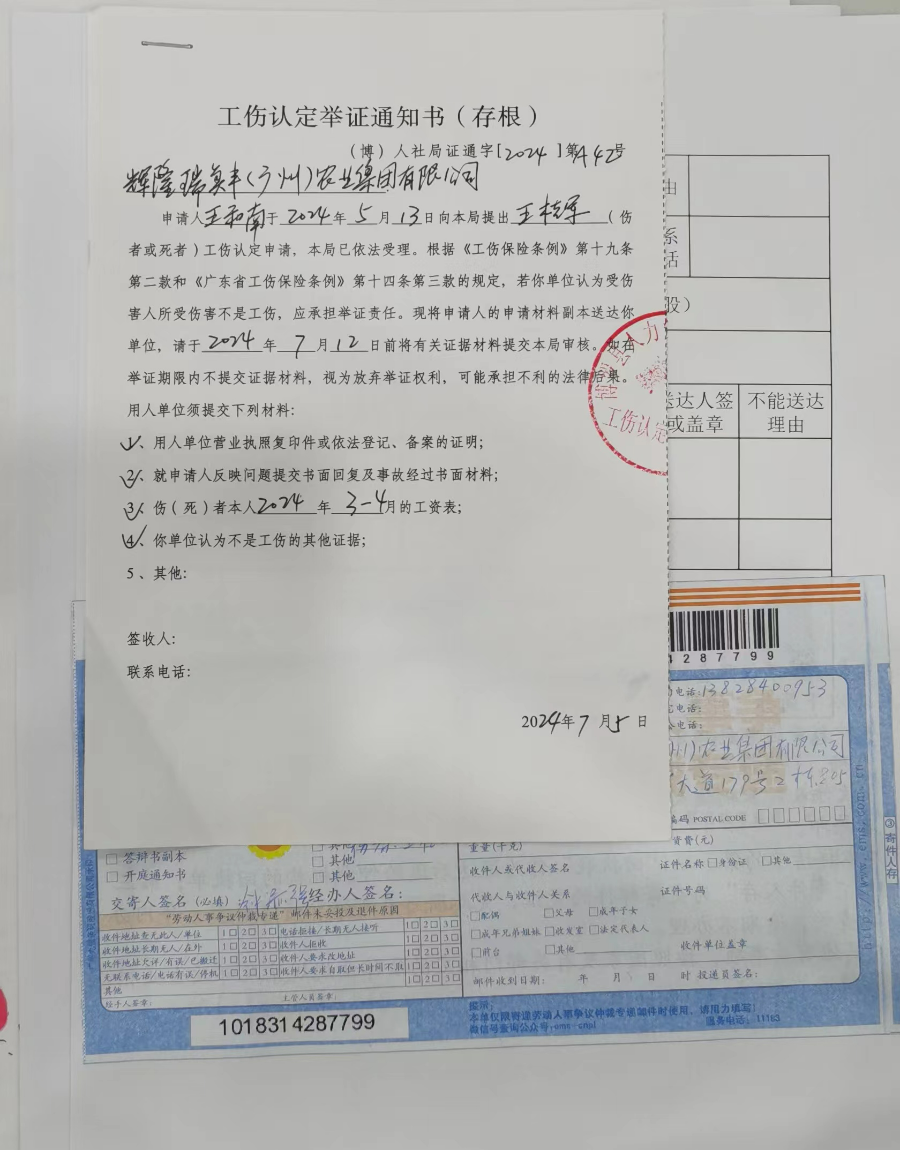 工伤认定举证通知书（存根）
（博）人社局证通字[2024]第A42号
辉隆瑞美丰(广州)农业集团有限公司
申请人王和南于2024年5月13日向本局提出王桂军（伤
者或死者）工伤认定申请，本局已依法受理。根据《工伤保险条例》第十九条
第二款和《广东省工伤保险条例》第十四条第三款的规定，若你单位认为受伤
害人所受伤害不是工伤，应承担举证责任。现将申请人的申请材料副本送达你
单位，请于2024年7月12日前将有关证据材料提交本局审核。如在
举证期限内不提交证据材料，视为放弃举证权利，可能承担不利的法律后果。
用人单位须提交下列材料：
1、用人单位营业执照复印件或依法登记、备案的证明；
2、就申请人反映问题提交书面回复及事故经过书面材料；
3、伤（死）者本人2024年3-4月的工资表；
4、你单位认为不是工伤的其他证据；
5、其他：
签收人：
联系电话：
2024年7月5日
人力
工伤认定
由
系
话
股）
送达人签
或盖章
不能送达
理由
4287799
电话：13828400953
电话：
电话：
州)农业集团有限公司
大道179号2栋805
编码 POSTAL CODE
答辩书副本
开庭通知书
其他
其他
其他
交寄人签名（必填）
经办人签名：
"劳动人事争议仲裁专递"邮件未妥投及退件原因
收件地址查无此人/单位 1 2 3 电话拒接/长期无人接听 1 2 3
收件地址长期无人/在外 1 2 3 收件人拒收 1 2 3
收件地址欠详/有误/已搬迁 1 2 3 收件人要求改地址 1 2 3
无联系电话/电话有误/停机 1 2 3 收件人要求自取但长时间不取 1 2 3
其他
经手人签章：
主管人员签章：
重量(千克)
资费(元)
收件人或代收人签名
证件名称 身份证 其他
代收人与收件人关系
证件号码
配偶 父母 成年子女
成年兄弟姐妹 收发室 法定代表人
前台 其他
收件单位盖章
邮件收到日期： 年 月 日 时 投递员签名：
提示：
本单仅限寄递劳动人事争议仲裁专递邮件时使用，请用力填写！
微信号查询公众号:ems-cnpl
服务电话：11183
1018314287799
③寄件人存
http://www.ems.com.cn